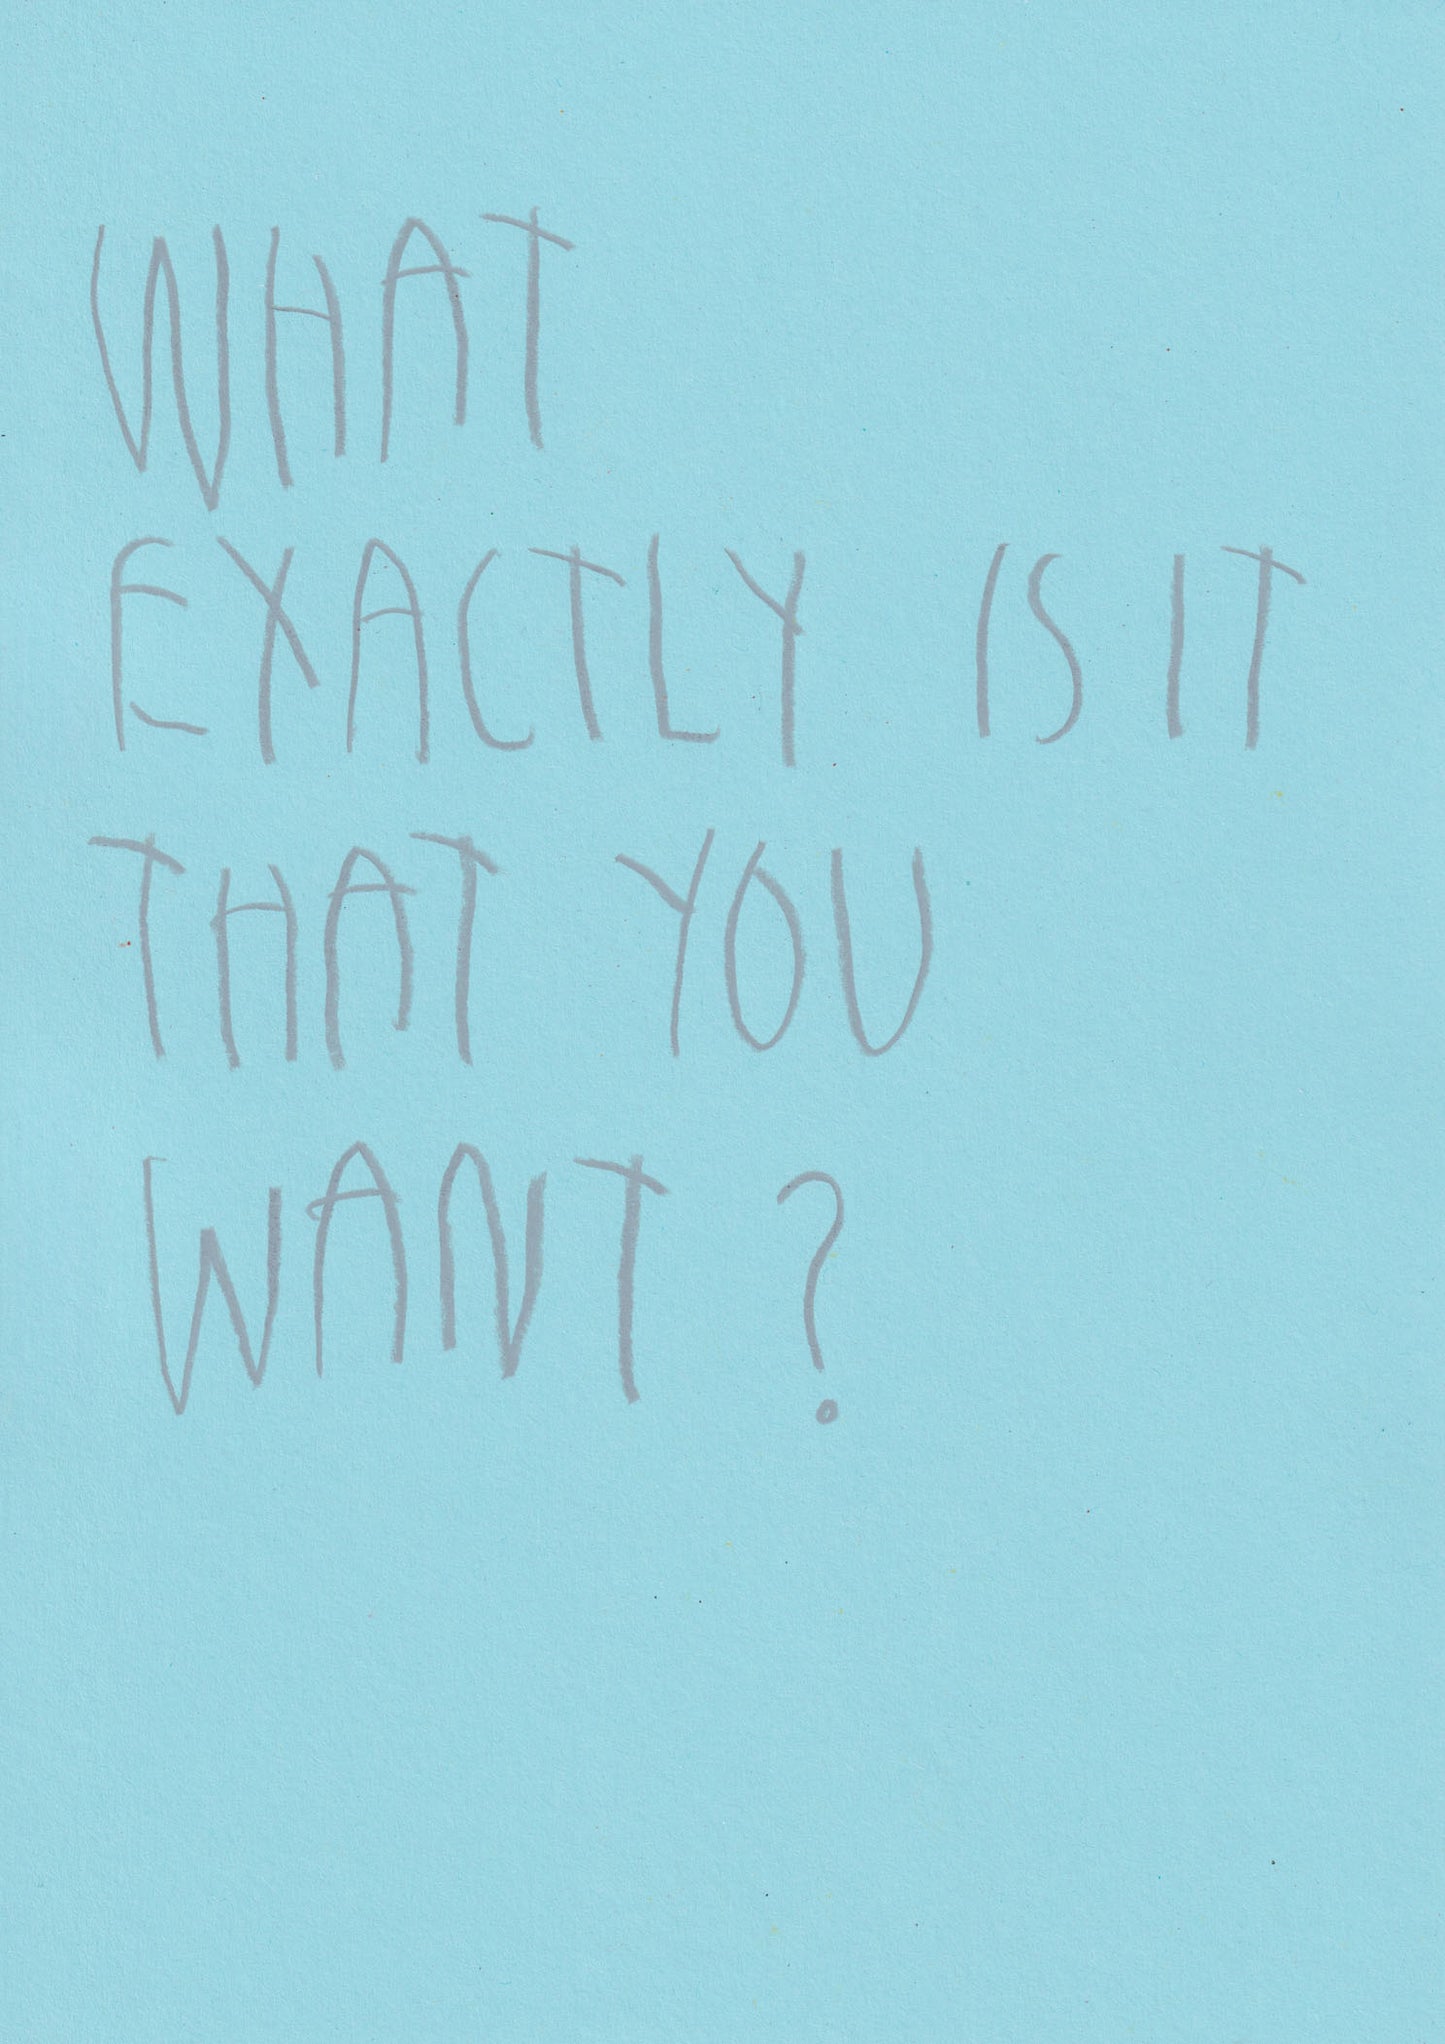 WHAT
EXACTLY IS IT
THAT YOU
WANT?